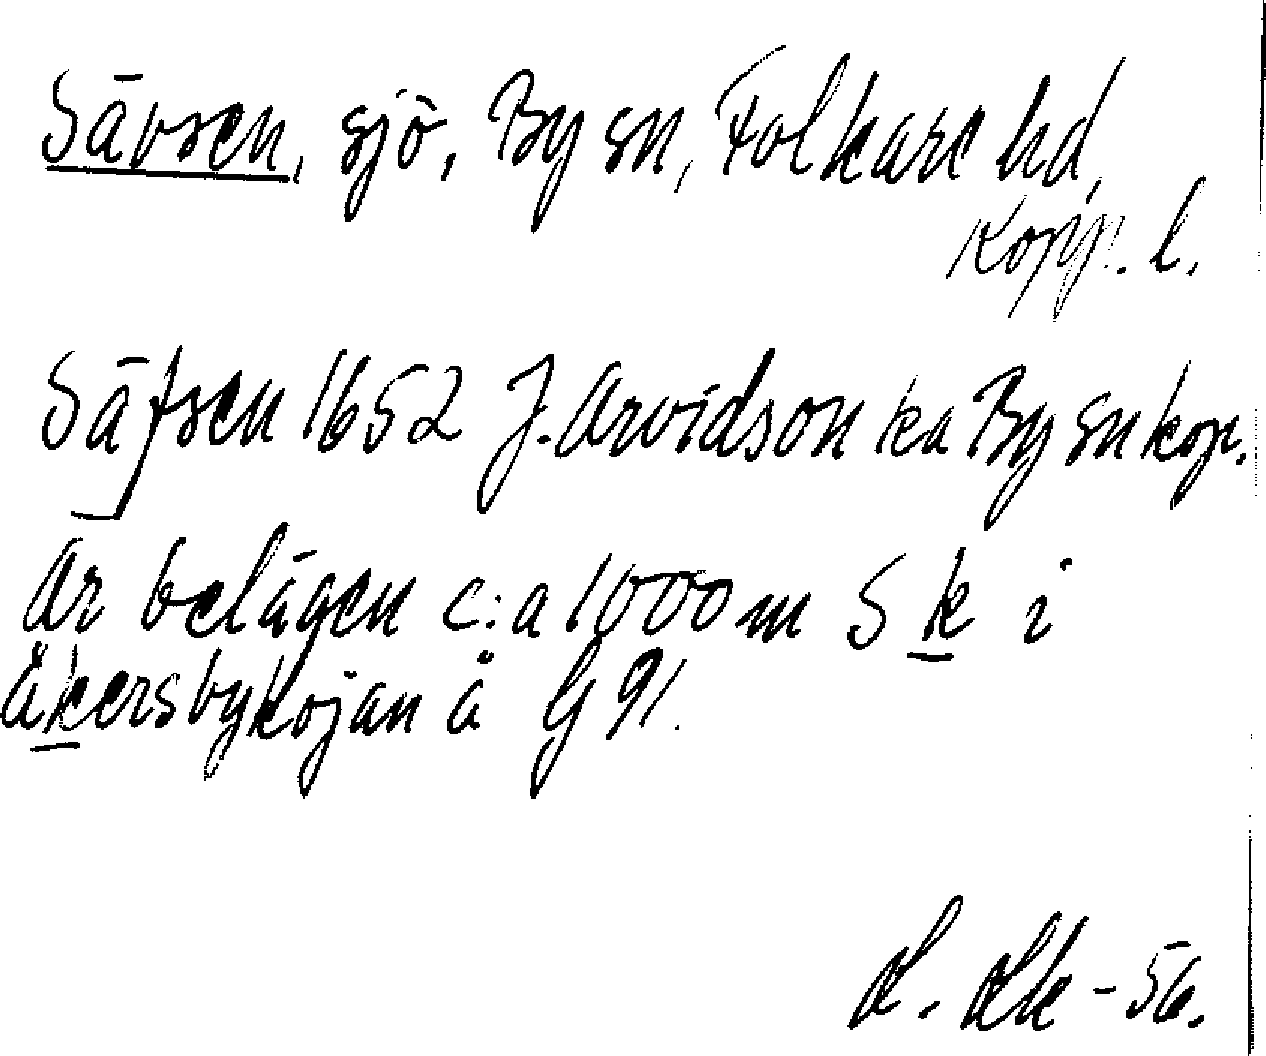 Sävsen, sjö, By sn, Folkare hd,
Kopp. l.
Säfsen 1652 J. Arvidson ka By sn kop.
Är belägen c:a 1000 m S k i
åkersbykojan å G 91.
L. Lk - 56.